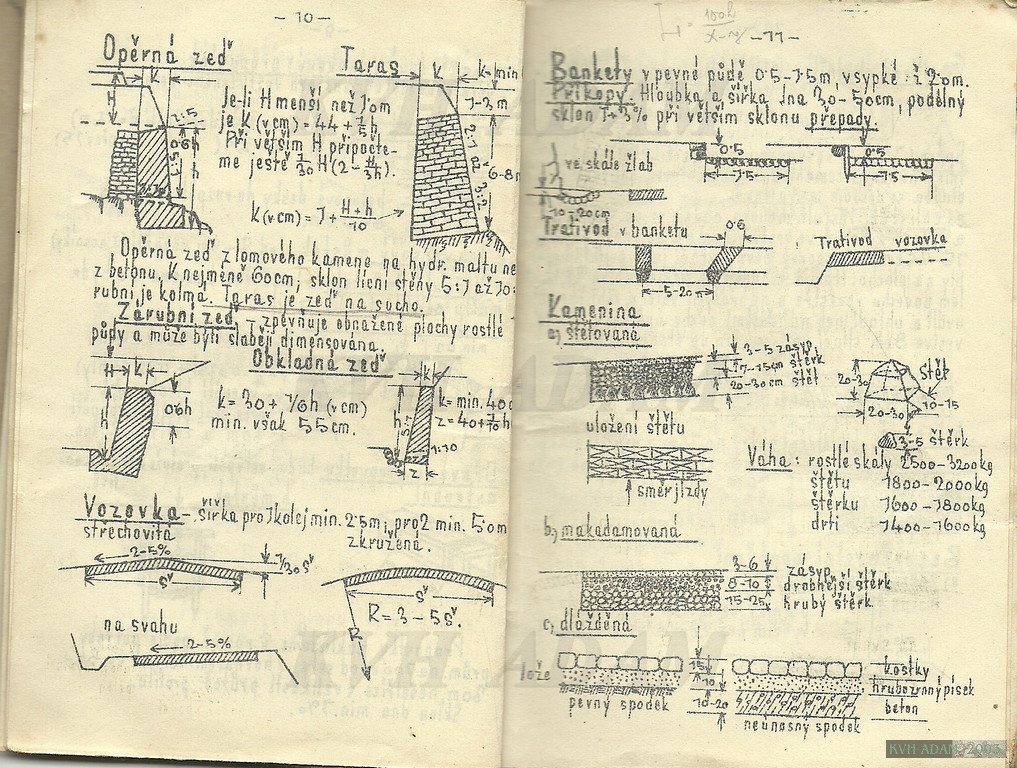 - 10 -
Opěrná zeď
Taras
k
k
k=min
H
1:5
0.6h
h
1-3m
2:1 až 3:1
6-8m
Je-li H menší než 1.0m
je K (v cm) = 44 + 1/5 h
Při větším H připočte-
me ještě 1/30 H (2 - H/3h).
K (v cm) = 1 + H+h/10
Opěrná zeď z lomového kamene na hydr. maltu ne
z betonu. K nejméně 60cm, sklon lícní stěny 5:1 až 10:
rubní je kolmá. Taras je zeď na sucho.
Zárubní zeď - zpěvňuje obnažené plochy rostlé
půdy a může býti slaběji dimensována.
Obkladná zeď
H
k
h
0.6h
k = 30 + 1/6h (v cm)
min. však 55cm.
k
h
5:1
1:10
z
k= min. 40c
z = 40+1/10 h
Vozovka - šířka pro 1 kolej min. 2.5m, pro 2 min. 5.0m
střechovitá
zkružená.
2-5%
1/30 š
š
š
R = 3 - 5š.
R
na svahu
2-5%
- 11 -
Bankety v pevné půdě 0.5-1.5m, v sypké : ž 2.0m.
Příkopy. Hloubka a šířka dna 30-50cm, podélný
sklon 1÷3% při větším sklonu přepady.
ve skále žlab
10-20cm
0.5
1.5
0.5
1.5
Trativod v banketu
0.6
5-20m
Trativod
vozovka
Kamenina
a) štětovaná
3-5 zásyp,
7-15cm štěrk
20-30cm štět
20-30
20-30
štět
10-15
3-5 štěrk
uložení štětu
směr jízdy
Váha: rostlé skály 2500-3200kg
štětu 1800-2000kg
štěrku 1600-1800kg
drti 1400-1600kg
b) makadamovaná
3-6 zásyp
8-10 drobnější štěrk
15-25 hrubý štěrk
c) dlážděná
lože
15
10
10-20
kostky
hrubozrnný písek
beton
pevný spodek
neúnosný spodek
KVH ADAM
KVH ADAM
KVH ADAM
KVH ADAM 2005